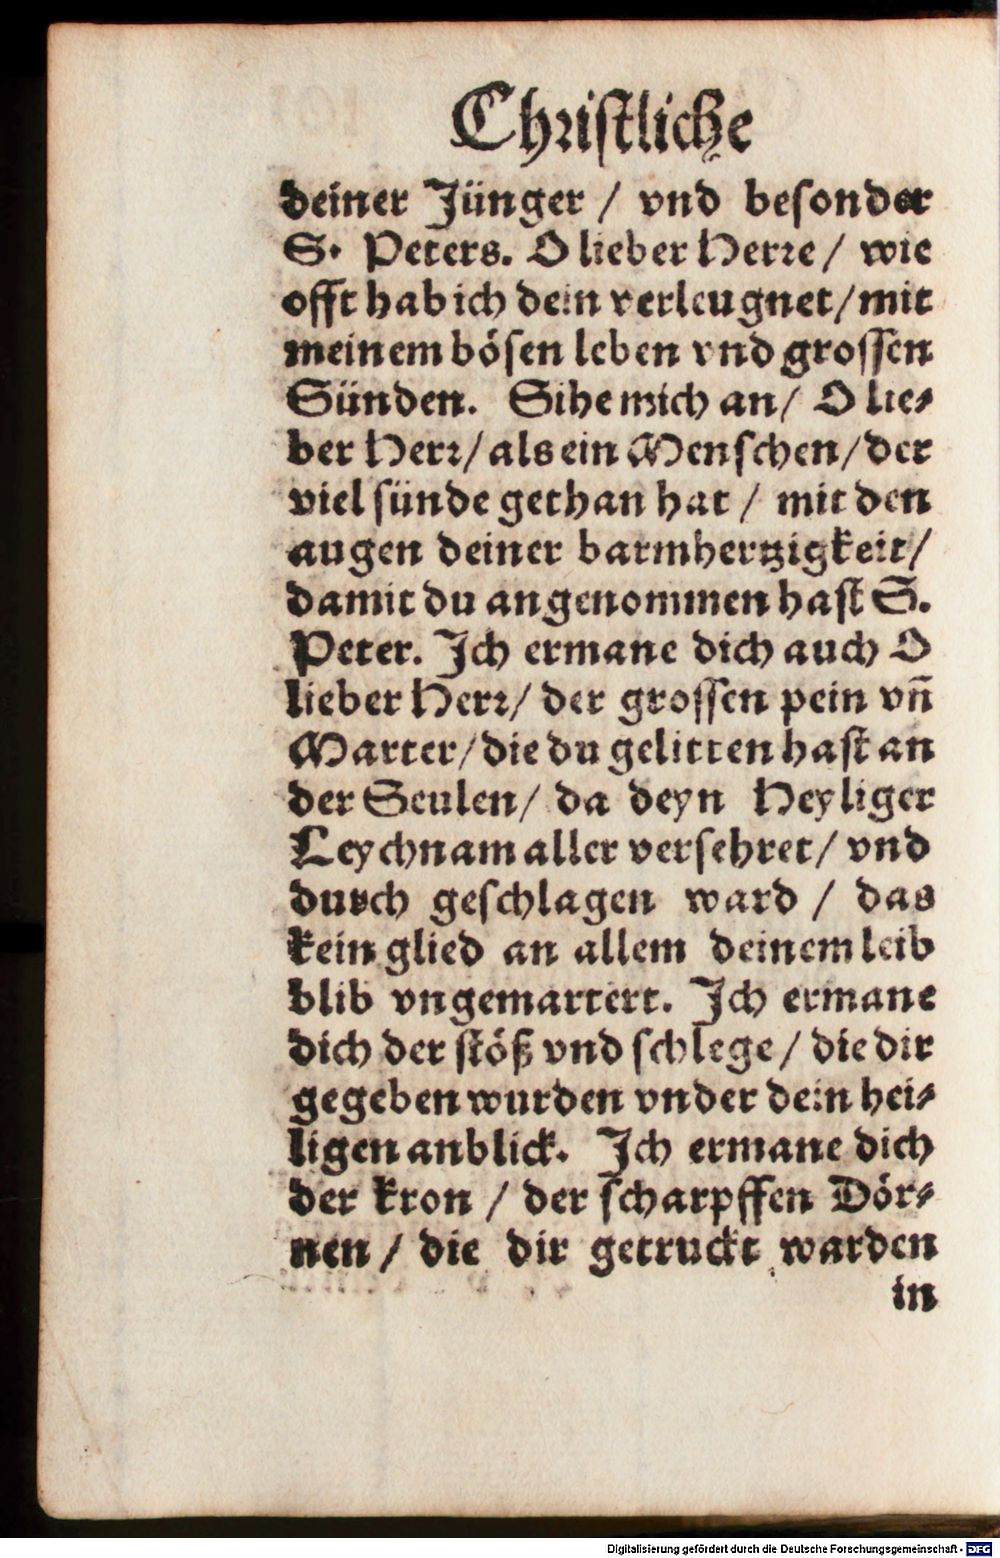 Christliche
deiner Jünger / vnd besonder
S. Peters. O lieber Herre / wie
offt hab ich dein verleugnet / mit
meinem bösen leben vnd grossen
Sünden. Sihe mich an / O lie-
ber Herr / als ein Menschen / der
viel sünde gethan hat / mit den
augen deiner barmhertzigkeit /
damit du angenommen hast S.
Peter. Ich ermane dich auch O
lieber Herr / der grossen pein vñ
Marter / die du gelitten hast an
der Seulen / da deyn Heyliger
Leychnam aller versehret / vnd
durch geschlagen ward / das
kein glied an allem deinem leib
blib vngemartert. Ich ermane
dich der stöß vnd schlege / die dir
gegeben wurden vnder dein hei-
ligen anblick. Ich ermane dich
der kron / der scharpffen Dör-
nen / die dir getruckt warden
in
Digitalisierung gefördert durch die Deutsche Forschungsgemeinschaft - DFG